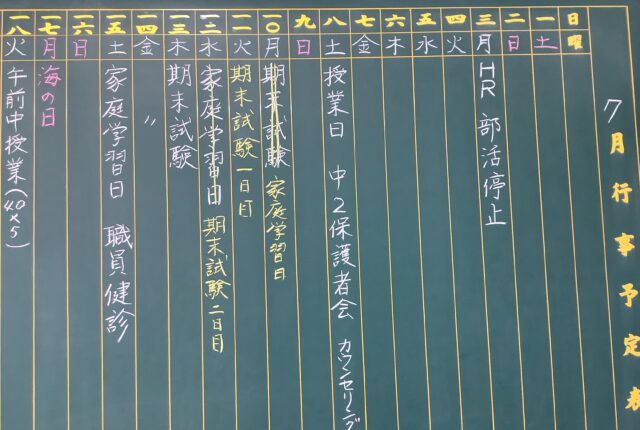 7月行事予定表
日曜
一土
二日
三月 HR 部活停止
四火
五水
六木
七金
八土 授業日 中2保護者会 カウンセリング
九日
一〇月 期末試験 家庭学習日
一一火 期末試験一日目
一二水 家庭学習日 期末試験二日目
一三木 期末試験
一四金 〃
一五土 家庭学習日 職員健診
一六日
一七月 海の日
一八火 午前中授業(40×5)